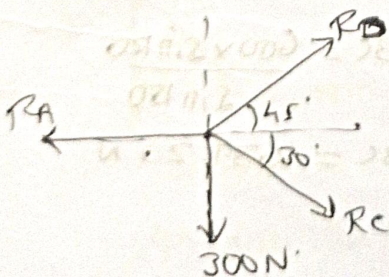 RD
RA
45°
30°
RC
300N